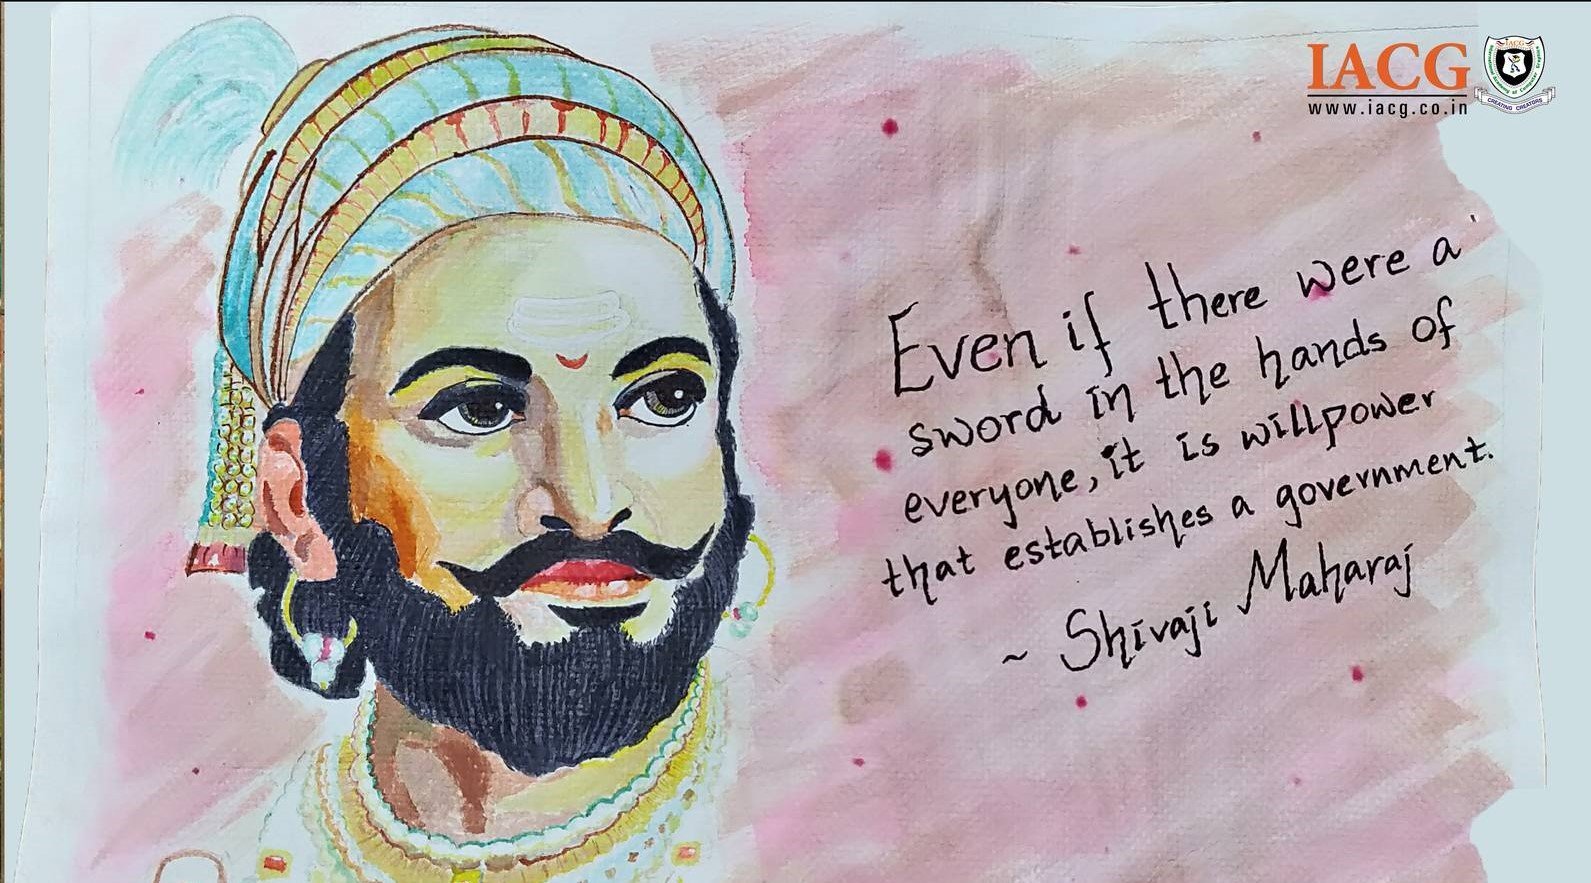 IACG
www.iacg.co.in
IACG
CREATING CREATORS
Even if there were a
sword in the hands of
everyone, it is willpower
that establishes a government.
~ Shivaji Maharaj